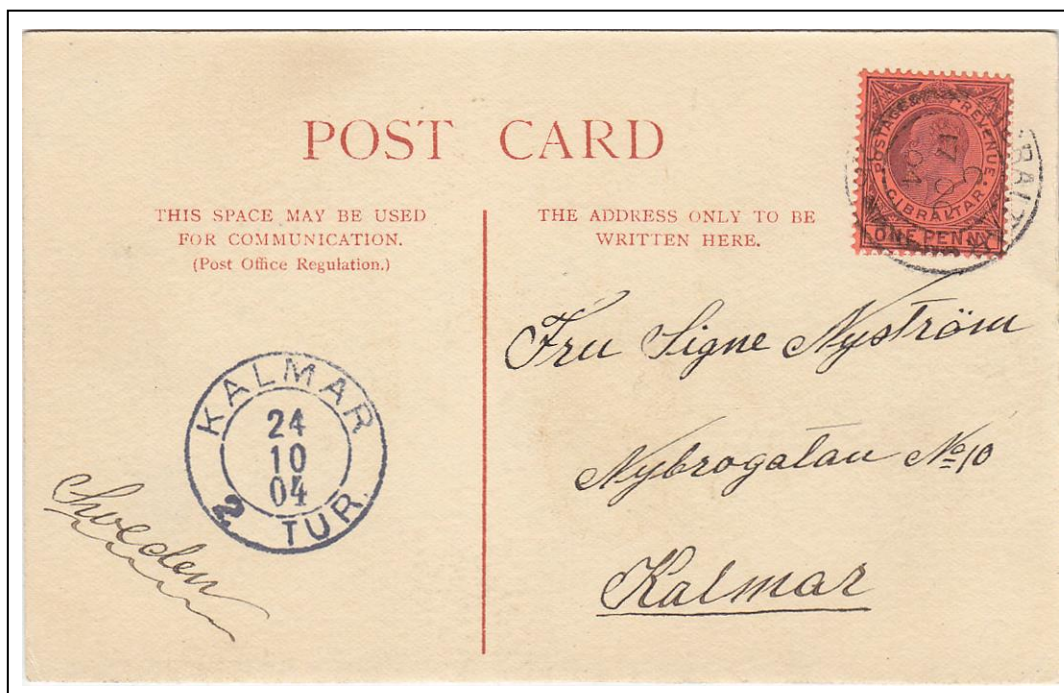 POST CARD
THIS SPACE MAY BE USED
FOR COMMUNICATION.
(Post Office Regulation.)
THE ADDRESS ONLY TO BE
WRITTEN HERE.
POSTAGE & REVENUE
GIBRALTAR
ONE PENNY
17
04
Fru Signe Nyström
Nybrogatan No 10
Kalmar
KALMAR
24
10
04
2 TUR.
Sweden